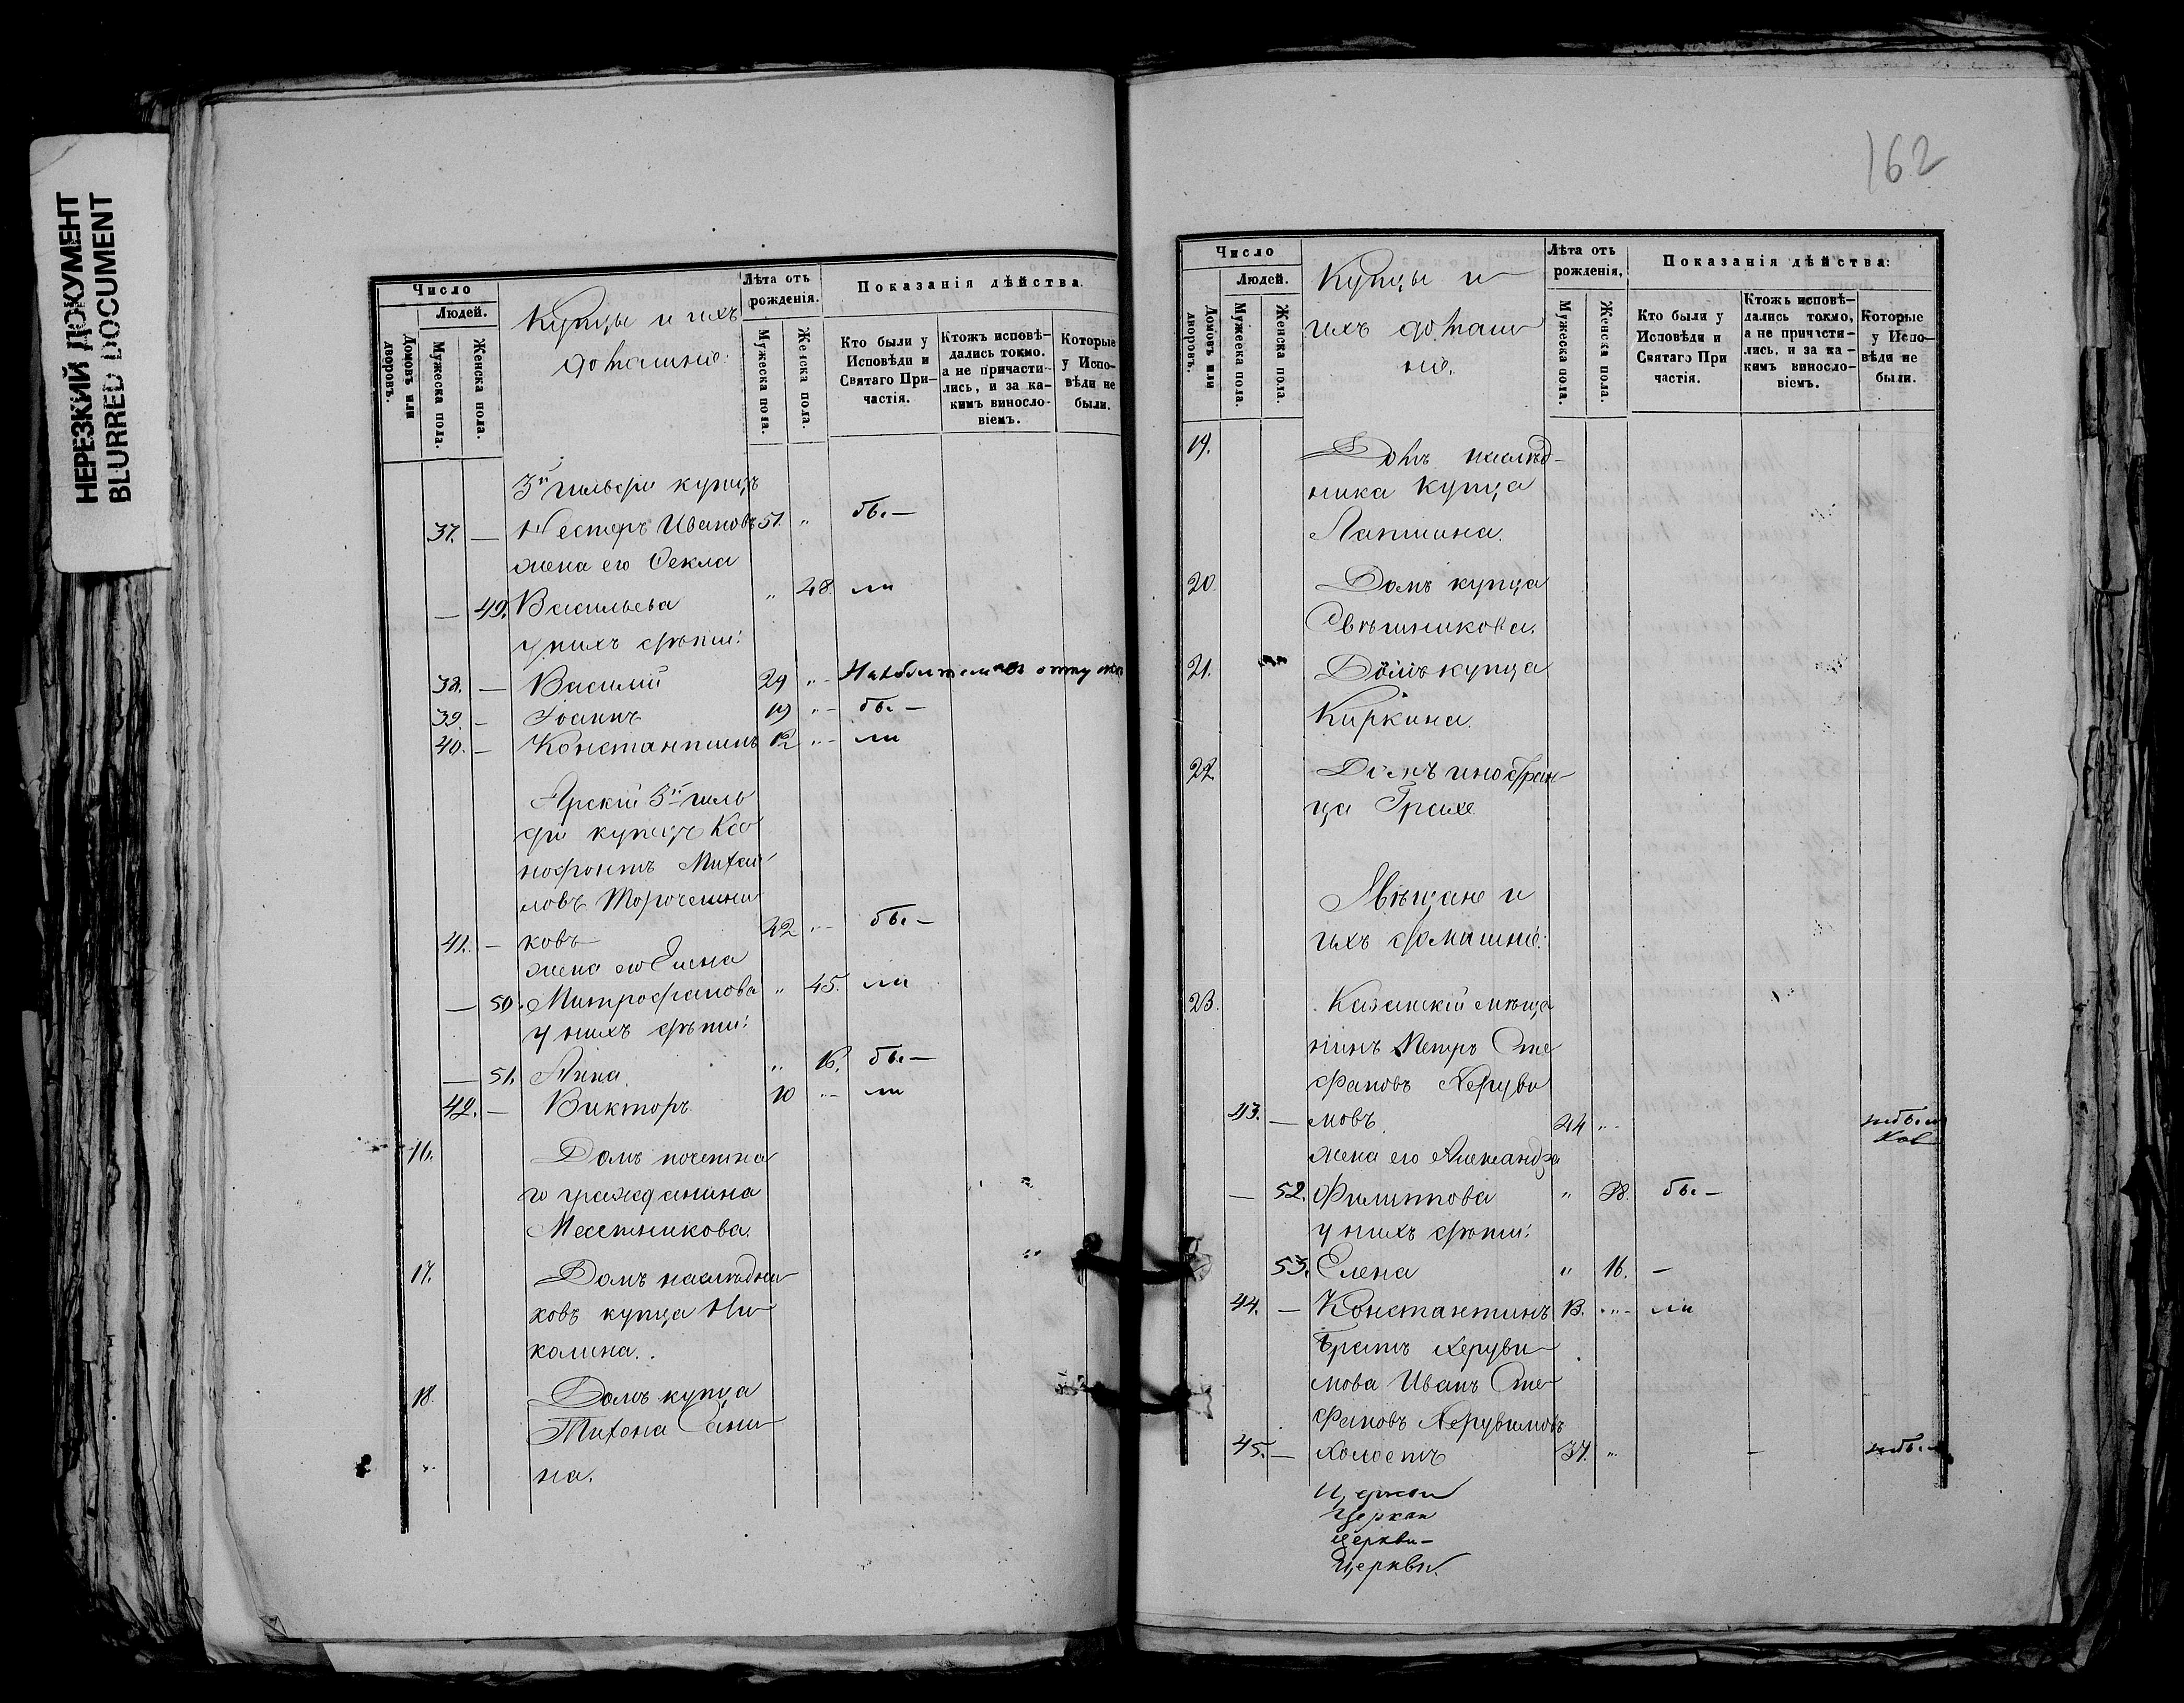 НЕРЕЗКИЙ ДОКУМЕНТ
BLURRED DOCUMENT
Число
Людей.
Домовъ или дворовъ.
Мужеска пола.
Женска пола.
Купцы и ихъ
домашніе:
Лѣта отъ рожденія.
Мужеска пола.
Женска пола.
Показанія дѣйства.
Кто были у Исповѣди и Святаго Причастія.
Ктожъ исповѣ-
дались токмо.
а не причасти-
лись, и за ка-
кимъ виносло-
віемъ.
Которые
у Испо-
вѣди не
были.
3й гильдіи купецъ
37. — Несторъ Ивановъ 51. „ бы —
жена его Ѳекла
— 49. Васильева „ 48. ли
у нихъ дѣти:
38. — Василій 29 „
39. — Іоаннъ 19 „ бы —
40. — Константинъ 12 „ ли
Арскій 3й гиль
діи купецъ Ксе
нофонтъ Михаи
ловъ
41. — ковъ 42 „ бы —
жена его Елена
— 50. Митрофанова „ 45. ли
у нихъ дѣти:
— 51. Анна „ 16. бы —
42. — Викторъ 10 „ ли
16. Домъ почетна
го гражданина
Месетникова.
17. Домъ наслѣдни
ковъ купца Ни
колина.
18. Домъ купца
Тихона Сани
на.
162
Число
Людей.
Домовъ или дворовъ.
Мужеска пола.
Женска пола.
Купцы и
ихъ домаш
ніе.
Лѣта отъ рожденія,
Мужеска пола.
Женска пола.
Показанія дѣйства:
Кто были у
Исповѣди и
Святаго При
частія.
Ктожь исповѣ-
дались токмо,
а не причасти-
лись, и за ка-
кимъ виносло-
віемъ.
Которые
у Испо-
вѣди не
были.
19. Домъ наслѣд-
ника купца
Лапшина.
20. Домъ купца
Свѣшникова.
21. Домъ купца
Киркина.
22. Домъ иностран-
ца Грахе
Мѣщане и
ихъ домашніе:
23. Казанскій мѣща
нинъ Петръ Сте
фановъ Херуви
43. — мовъ. 44 „
жена его Александра
— 52. Филиппова „ 38. бы —
у нихъ дѣти:
53. Елена „ 16. —
44. — Константинъ 13. „ ли
Братъ Херуви
мова Иванъ Сте
фановъ Херувимовъ
45. — холостъ 37. „
Церкви
Церкви
церкви —
Церкви.